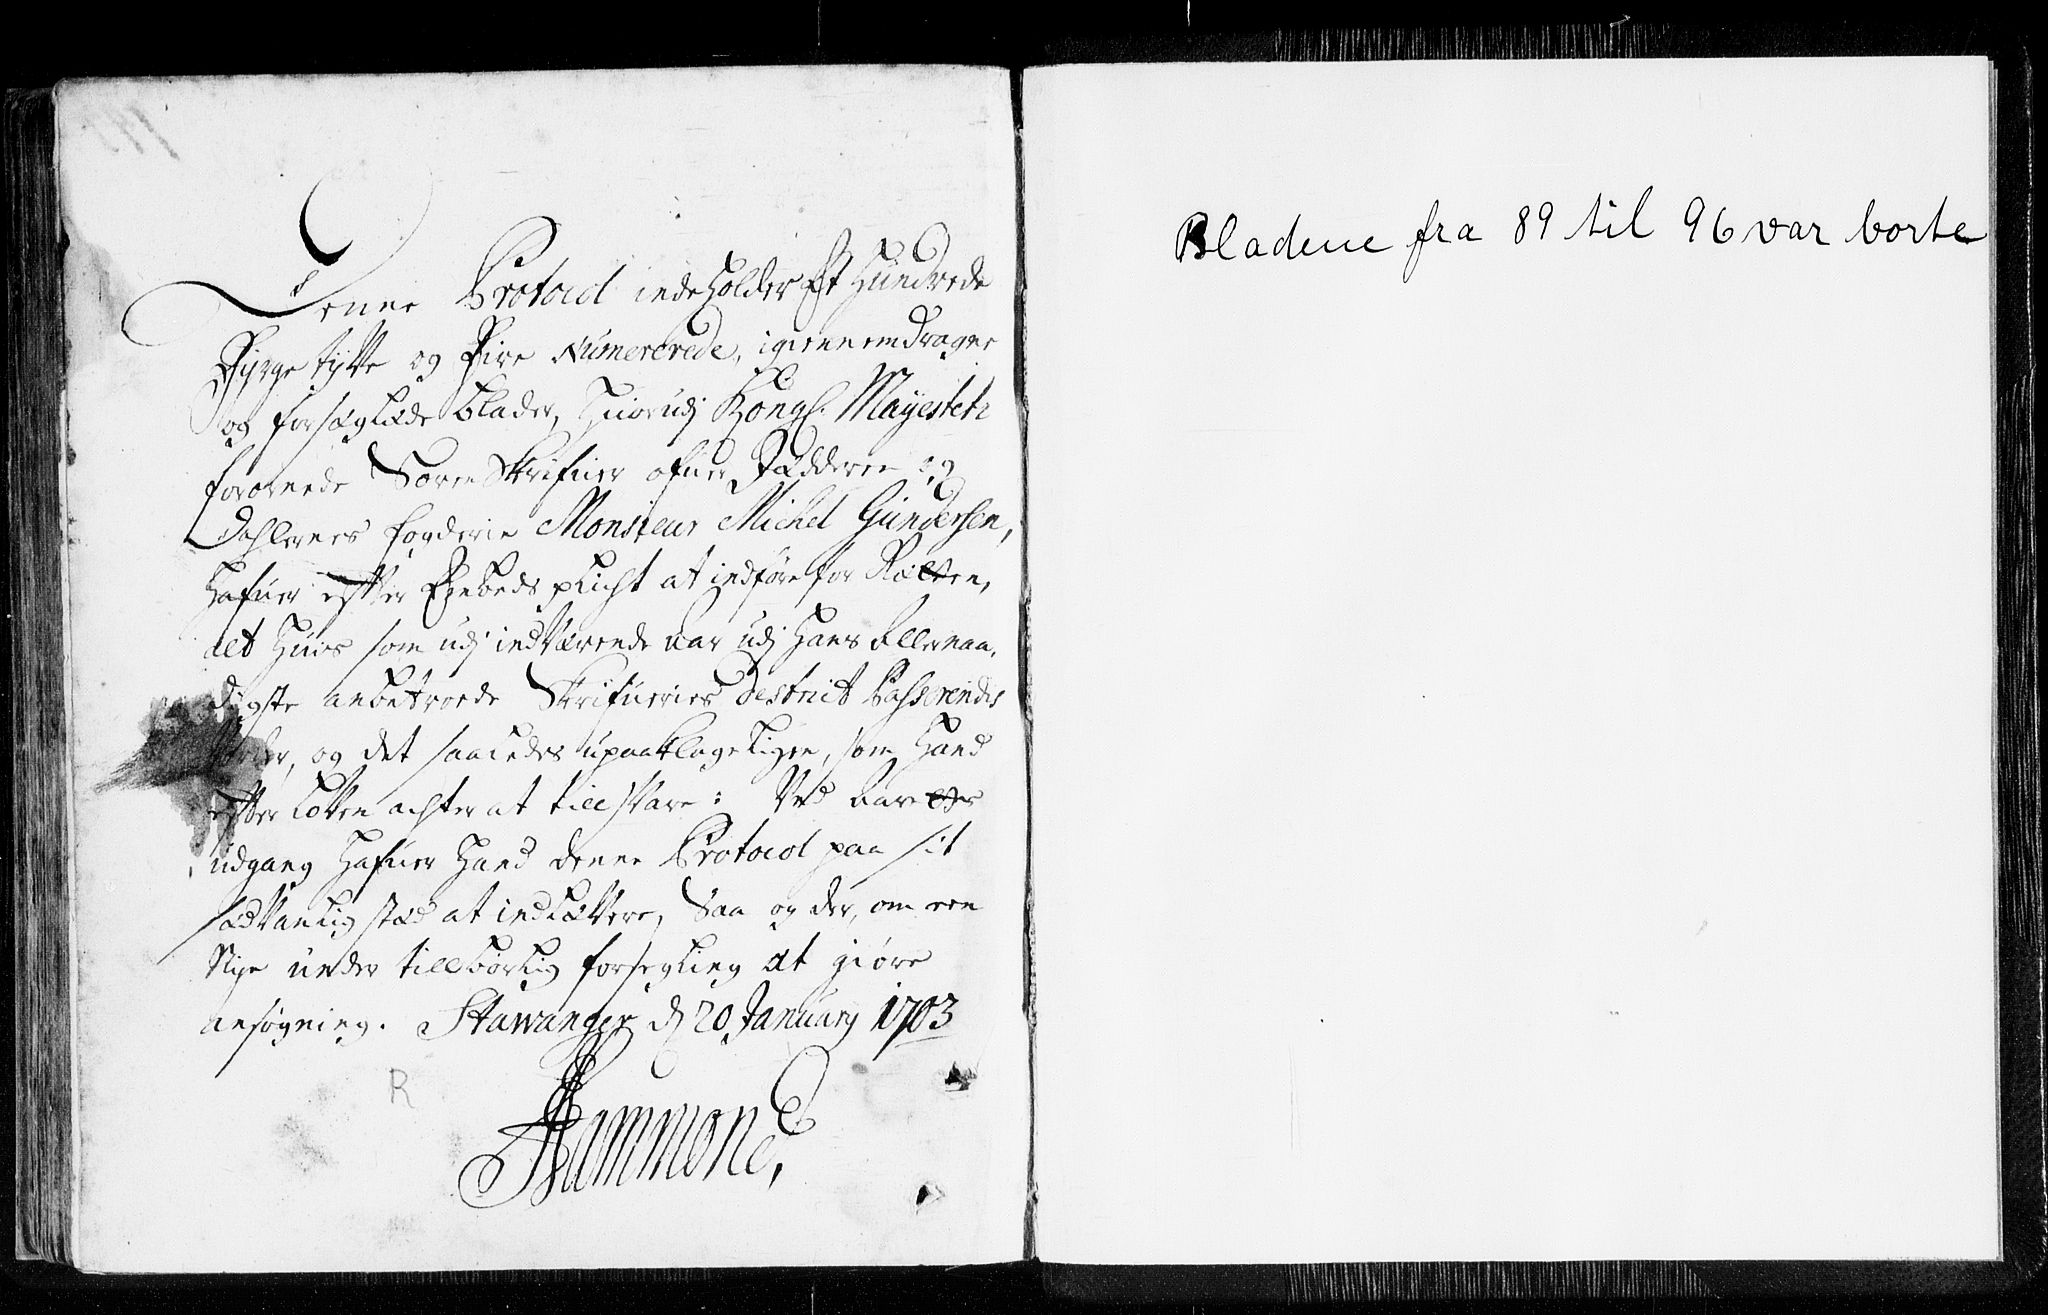 Denne Protocol indeholder Et Hundrede
Fyrgetytte og Fire Numererede, igiennemdragne
og forseglede blader, huorudj Kongl. Mayestetz
forornede Sorenskrifuer ofuer Jædderen og
Dahlernes fogderie Monsieur Michel Gundersen,
hafuer efter Embeds plicht at indføre for Retten,
alt huis som udj indværende aar udj hans allernaa,
digste anbetroede Skrifueries Destrict Passerendis
vorder, og det saaledes upaaklageligen, som hand
efter loven achter at tillsvare: Ved aaretts
udgang hafuer hand denne Protocol paa sit
sædvanlig stæd at indlefvere, Saa og der, om een
Nye under tillbørlig forsegling at giøre
ansøgning. Stawanger dj 20 January 1703
Hammond,
R
Bladene fra 89 til 96 var borte